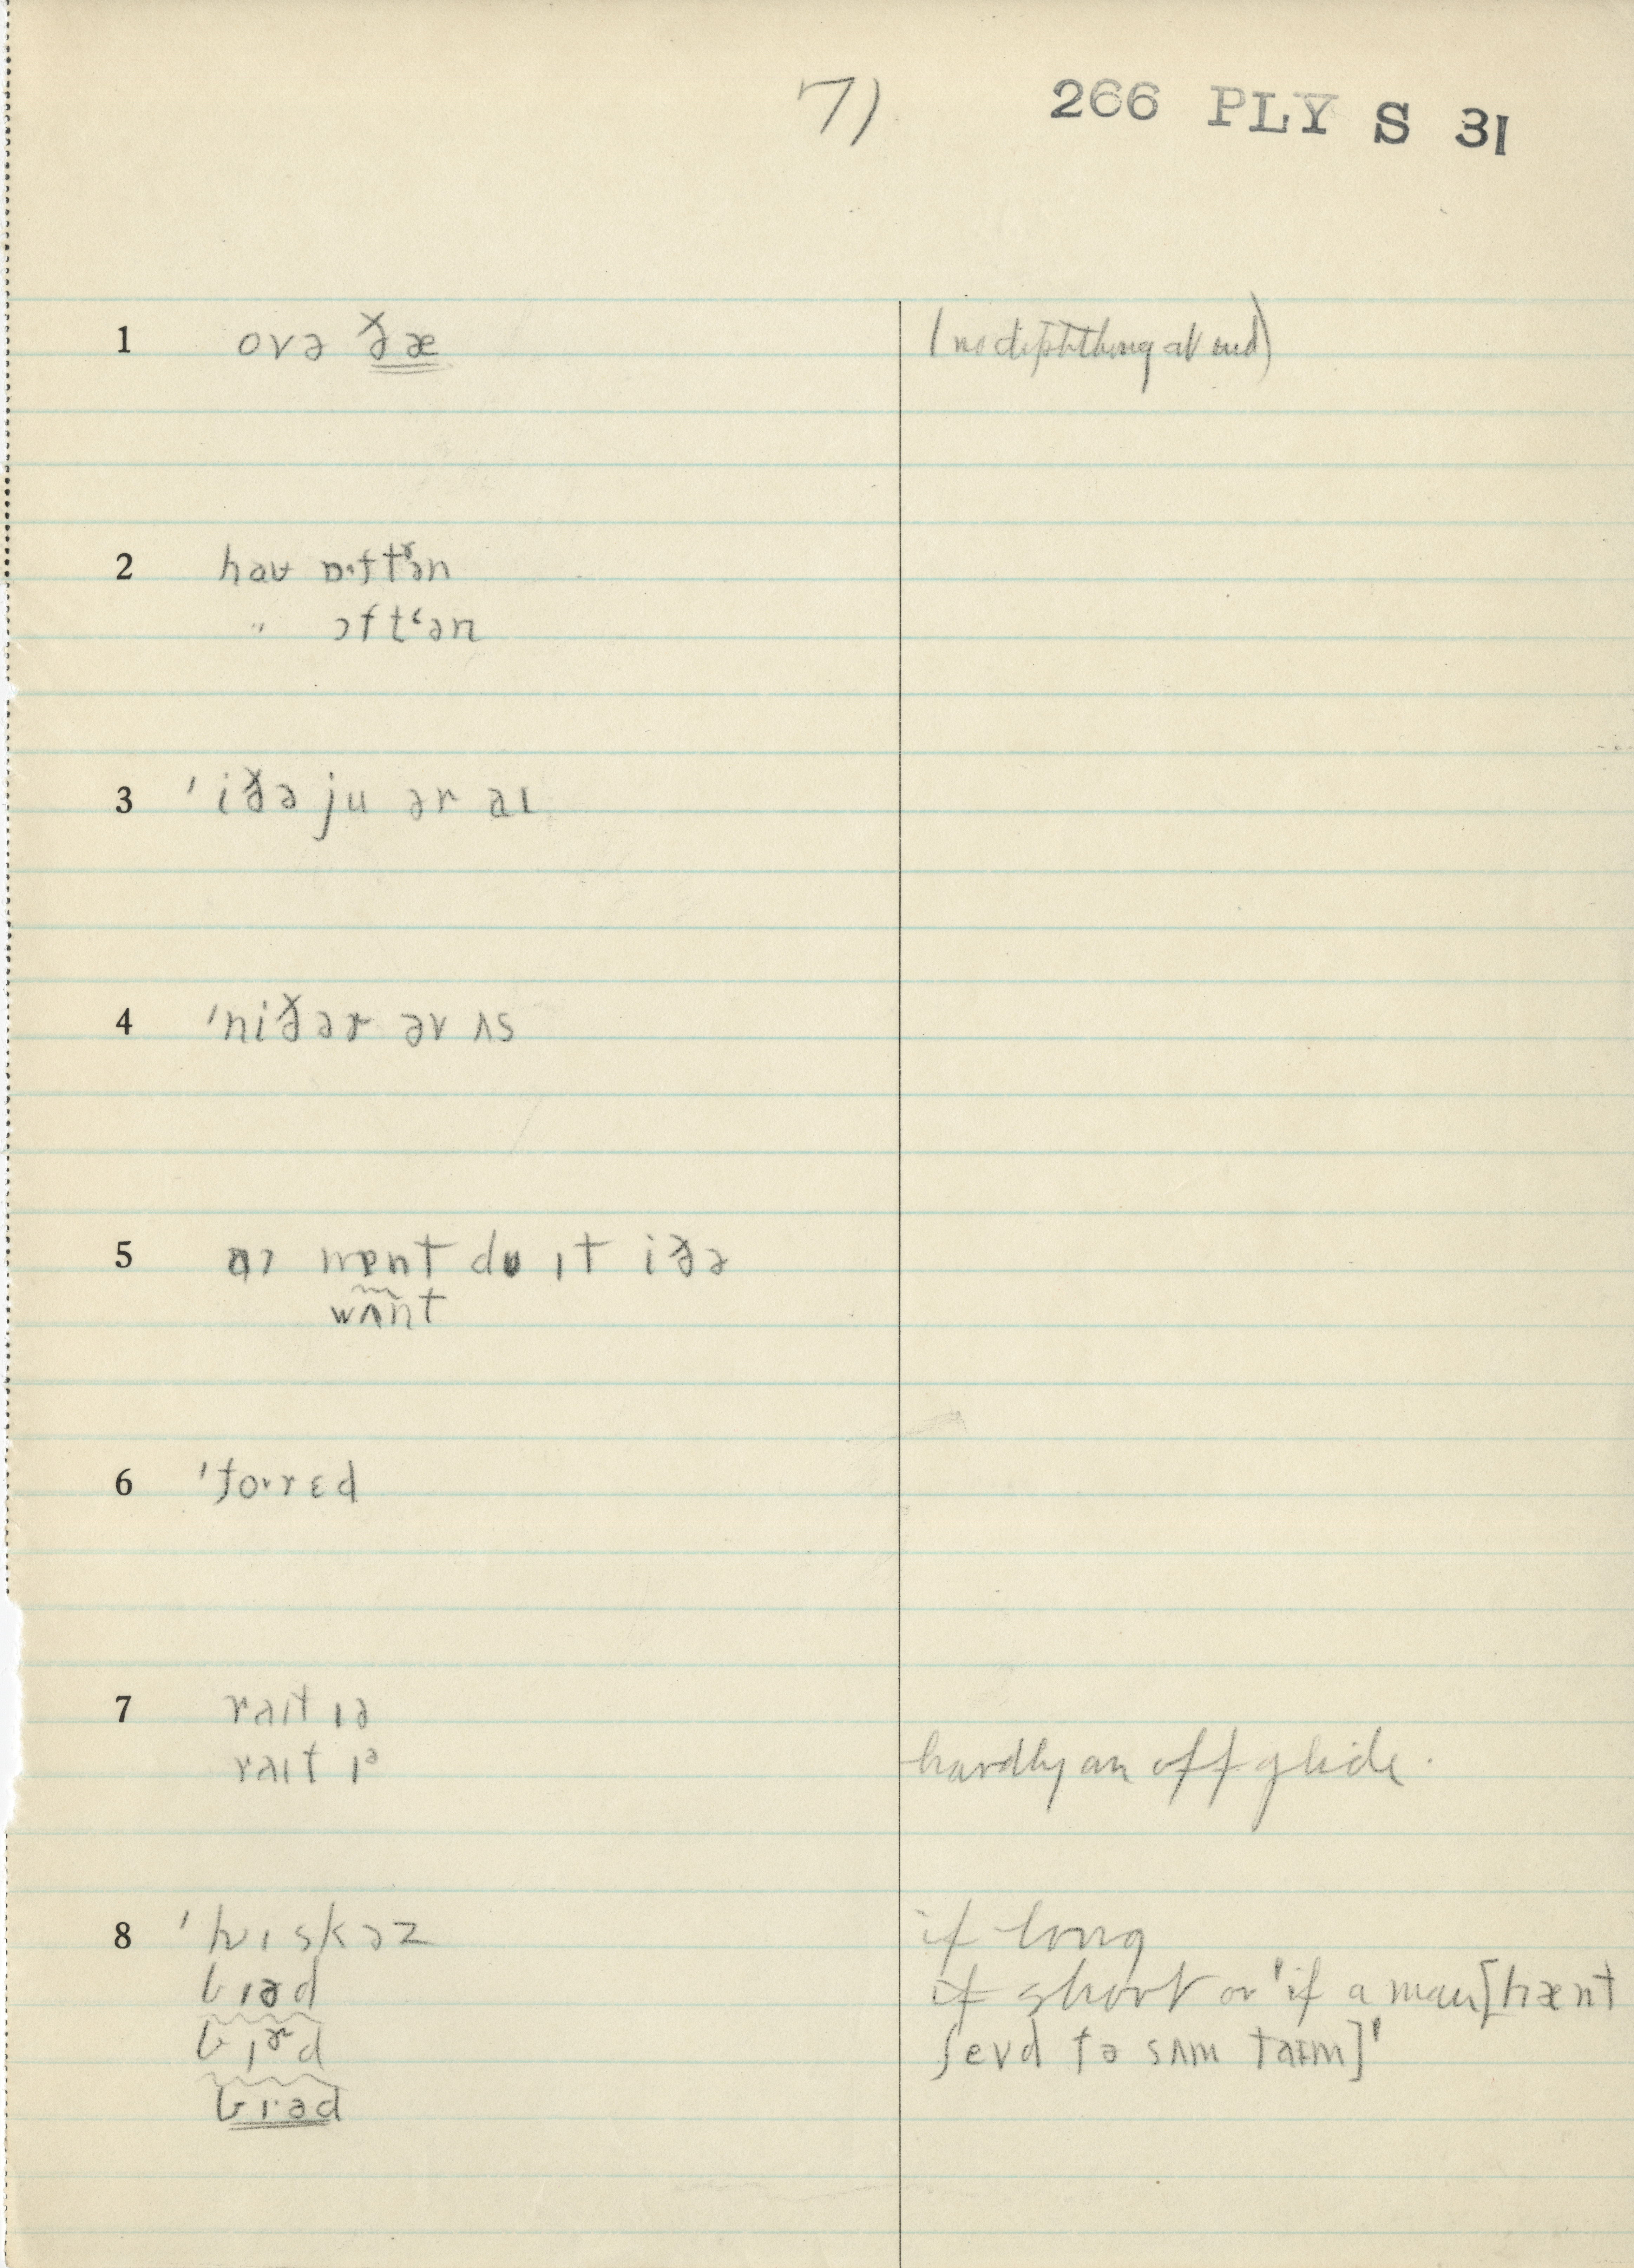 7) 266 PLY S 31
1 ovə ðæ (no diphthong at end)
2 haʊ ɒ·ftʳən
" ɔftʻən
3 'iðə ju ər aɪ
4 'niðər əv ʌs
5 ɪt iðə
wʌnt
6 'fo·rɛd
7 raɪt ɪə
raɪt ɪᵊ hardly an off glide.
8 'hwɪskəz if long
bɪəd if short or 'if a man [hænt
bɪᵊʳd ʃevd fə sʌm taɪm]'
bɪ·əd